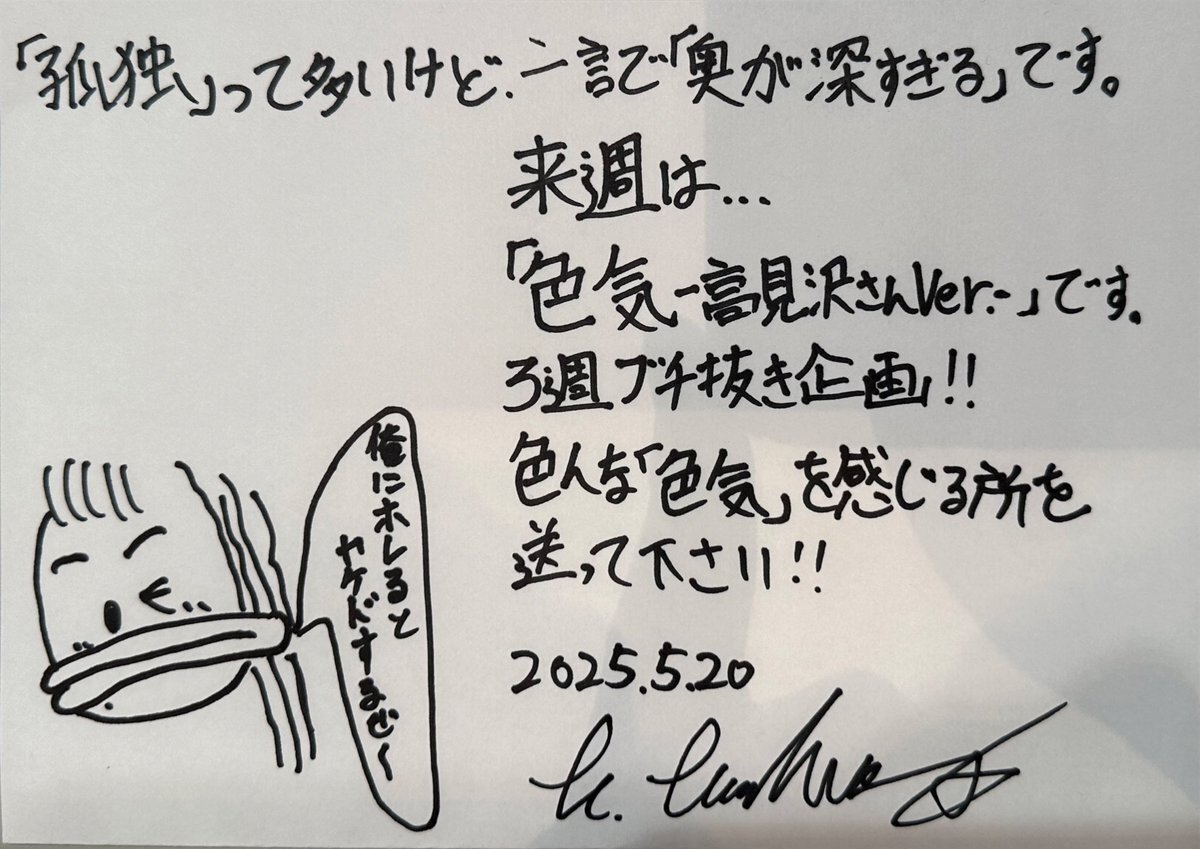 「孤独」って多いけど、一言で「奥が深すぎる」です。
来週は…
「色気-高見沢さんVer.-」です。
3週ブチ抜き企画!!
色んな「色気」を感じる所を
送って下さい!!
俺にホレると
ヤケドするぜ~
2025.5.20